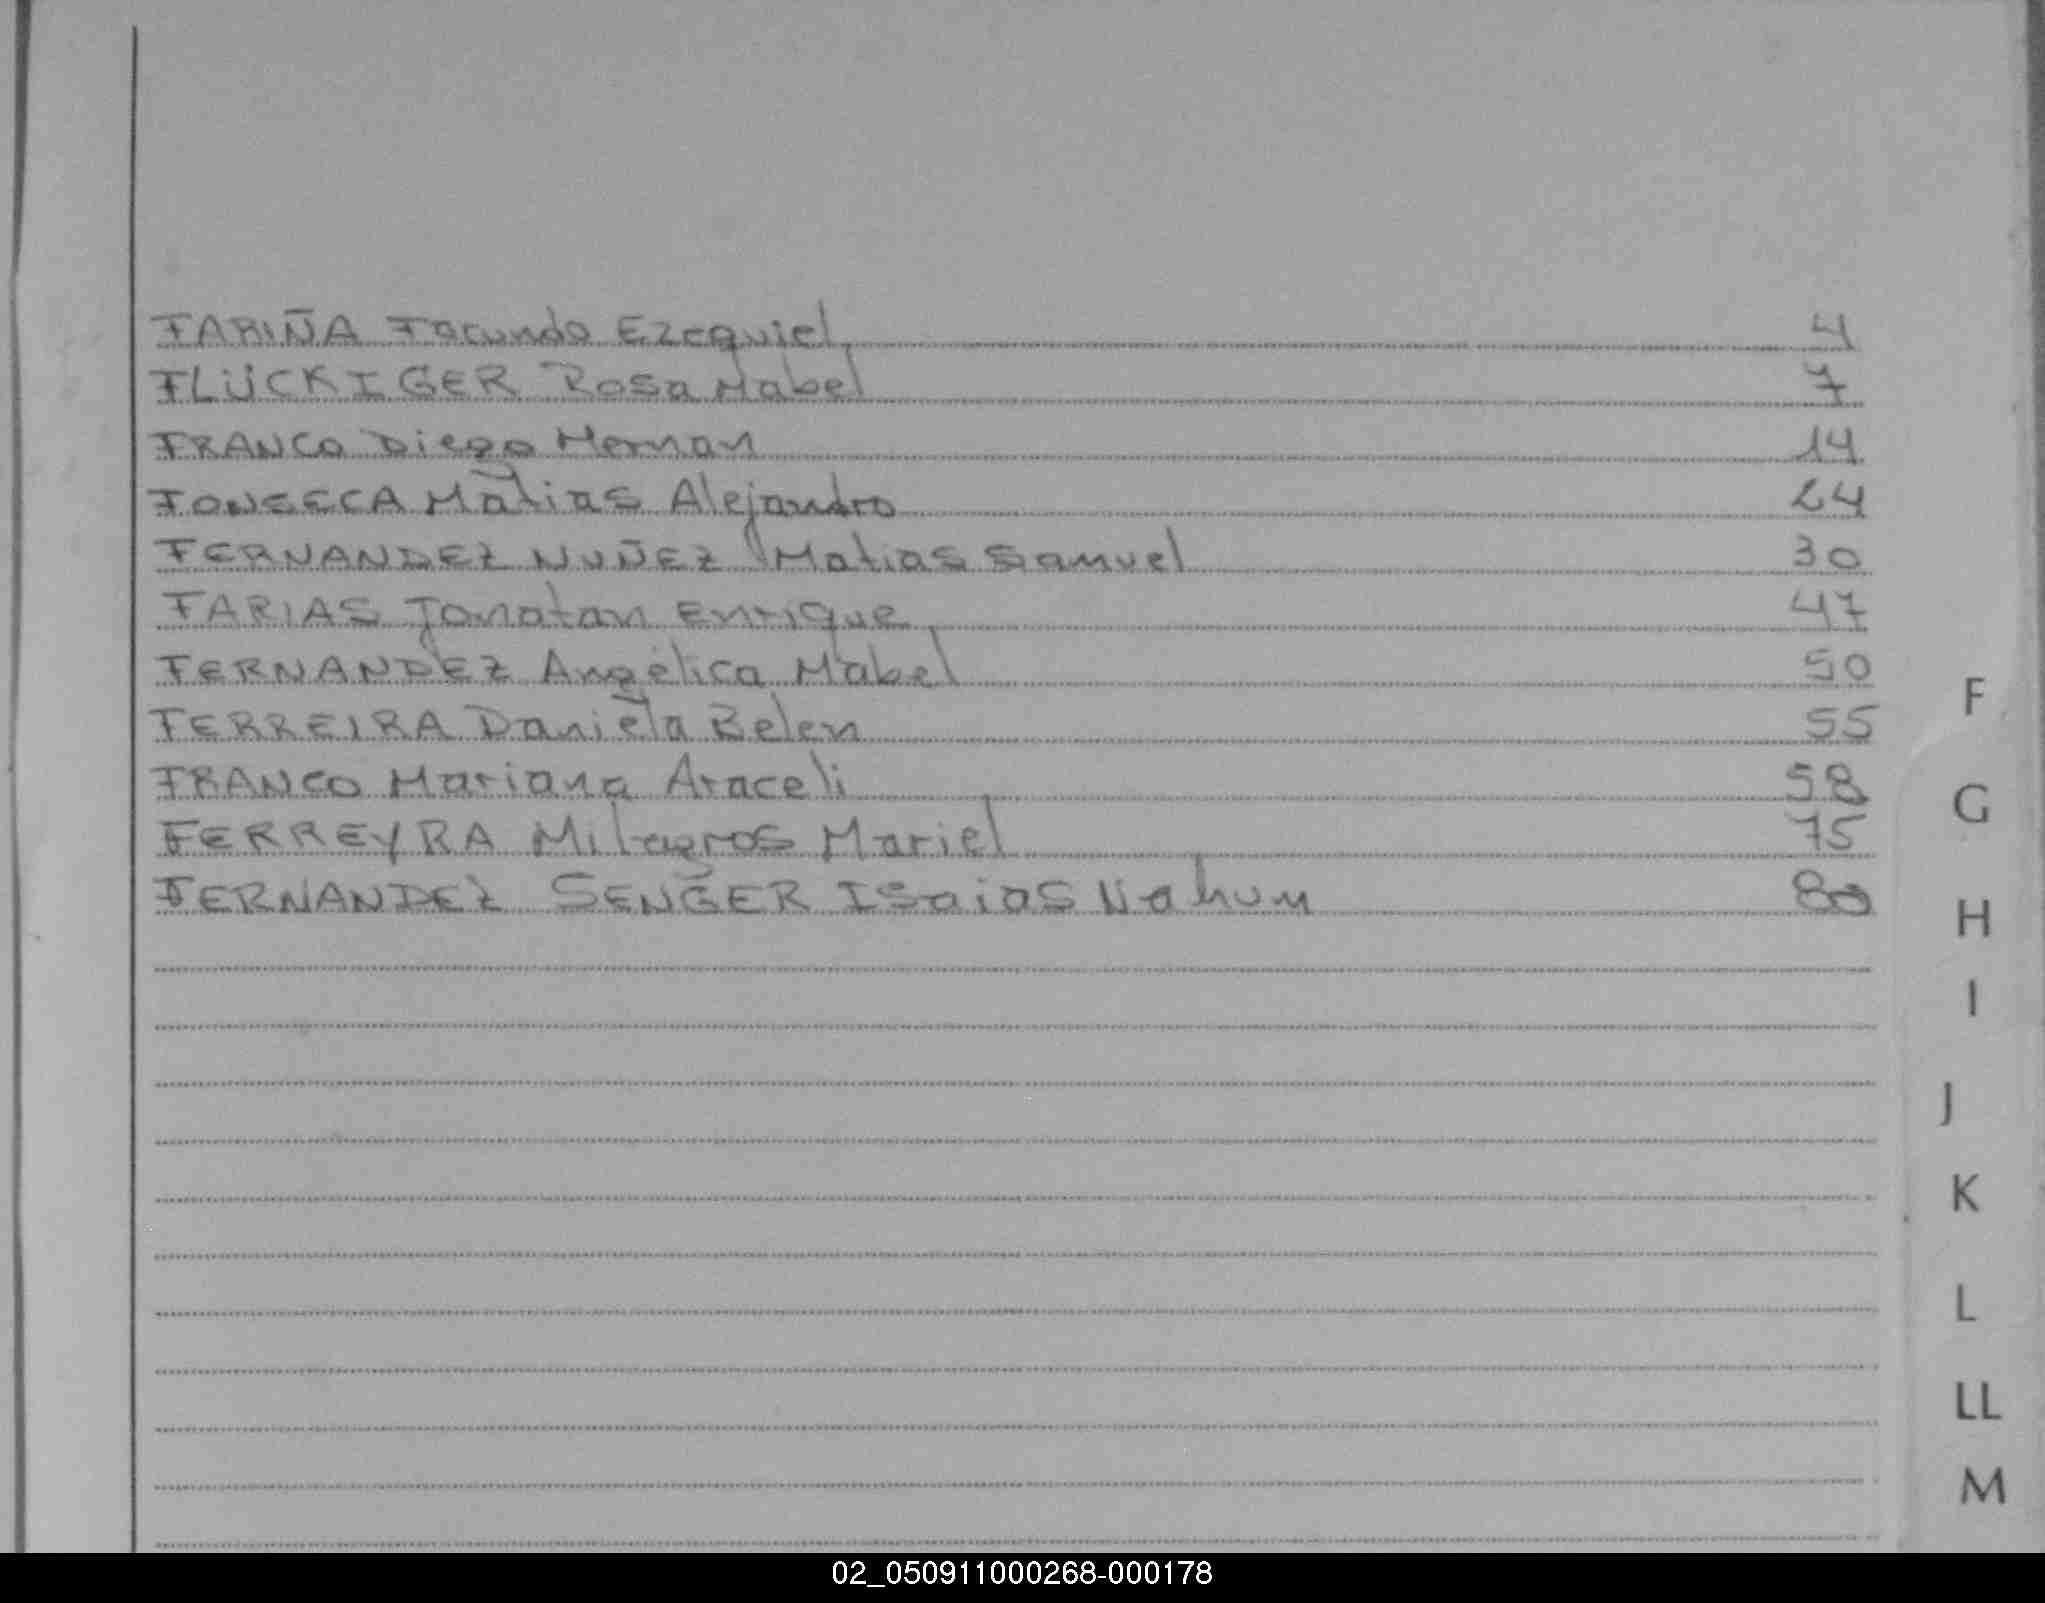 FARIÑA Facundo Ezequiel 4
FLÜCKIGER Rosa Mabel 7
FRANCO Diego Hernan 14
FONSECA Matias Alejandro 24
FERNANDEZ NUÑEZ Matias Samuel 30
FARIAS Jonatan Enrique 47
FERNANDEZ Angélica Mabel 50
FERREIRA Daniela Belen 55
FRANCO Mariana Araceli 58
FERREYRA Milagros Mariel 75
FERNANDEZ SENGER Isaias Nahum 80
F
G
H
I
J
K
L
LL
M
02_050911000268-000178